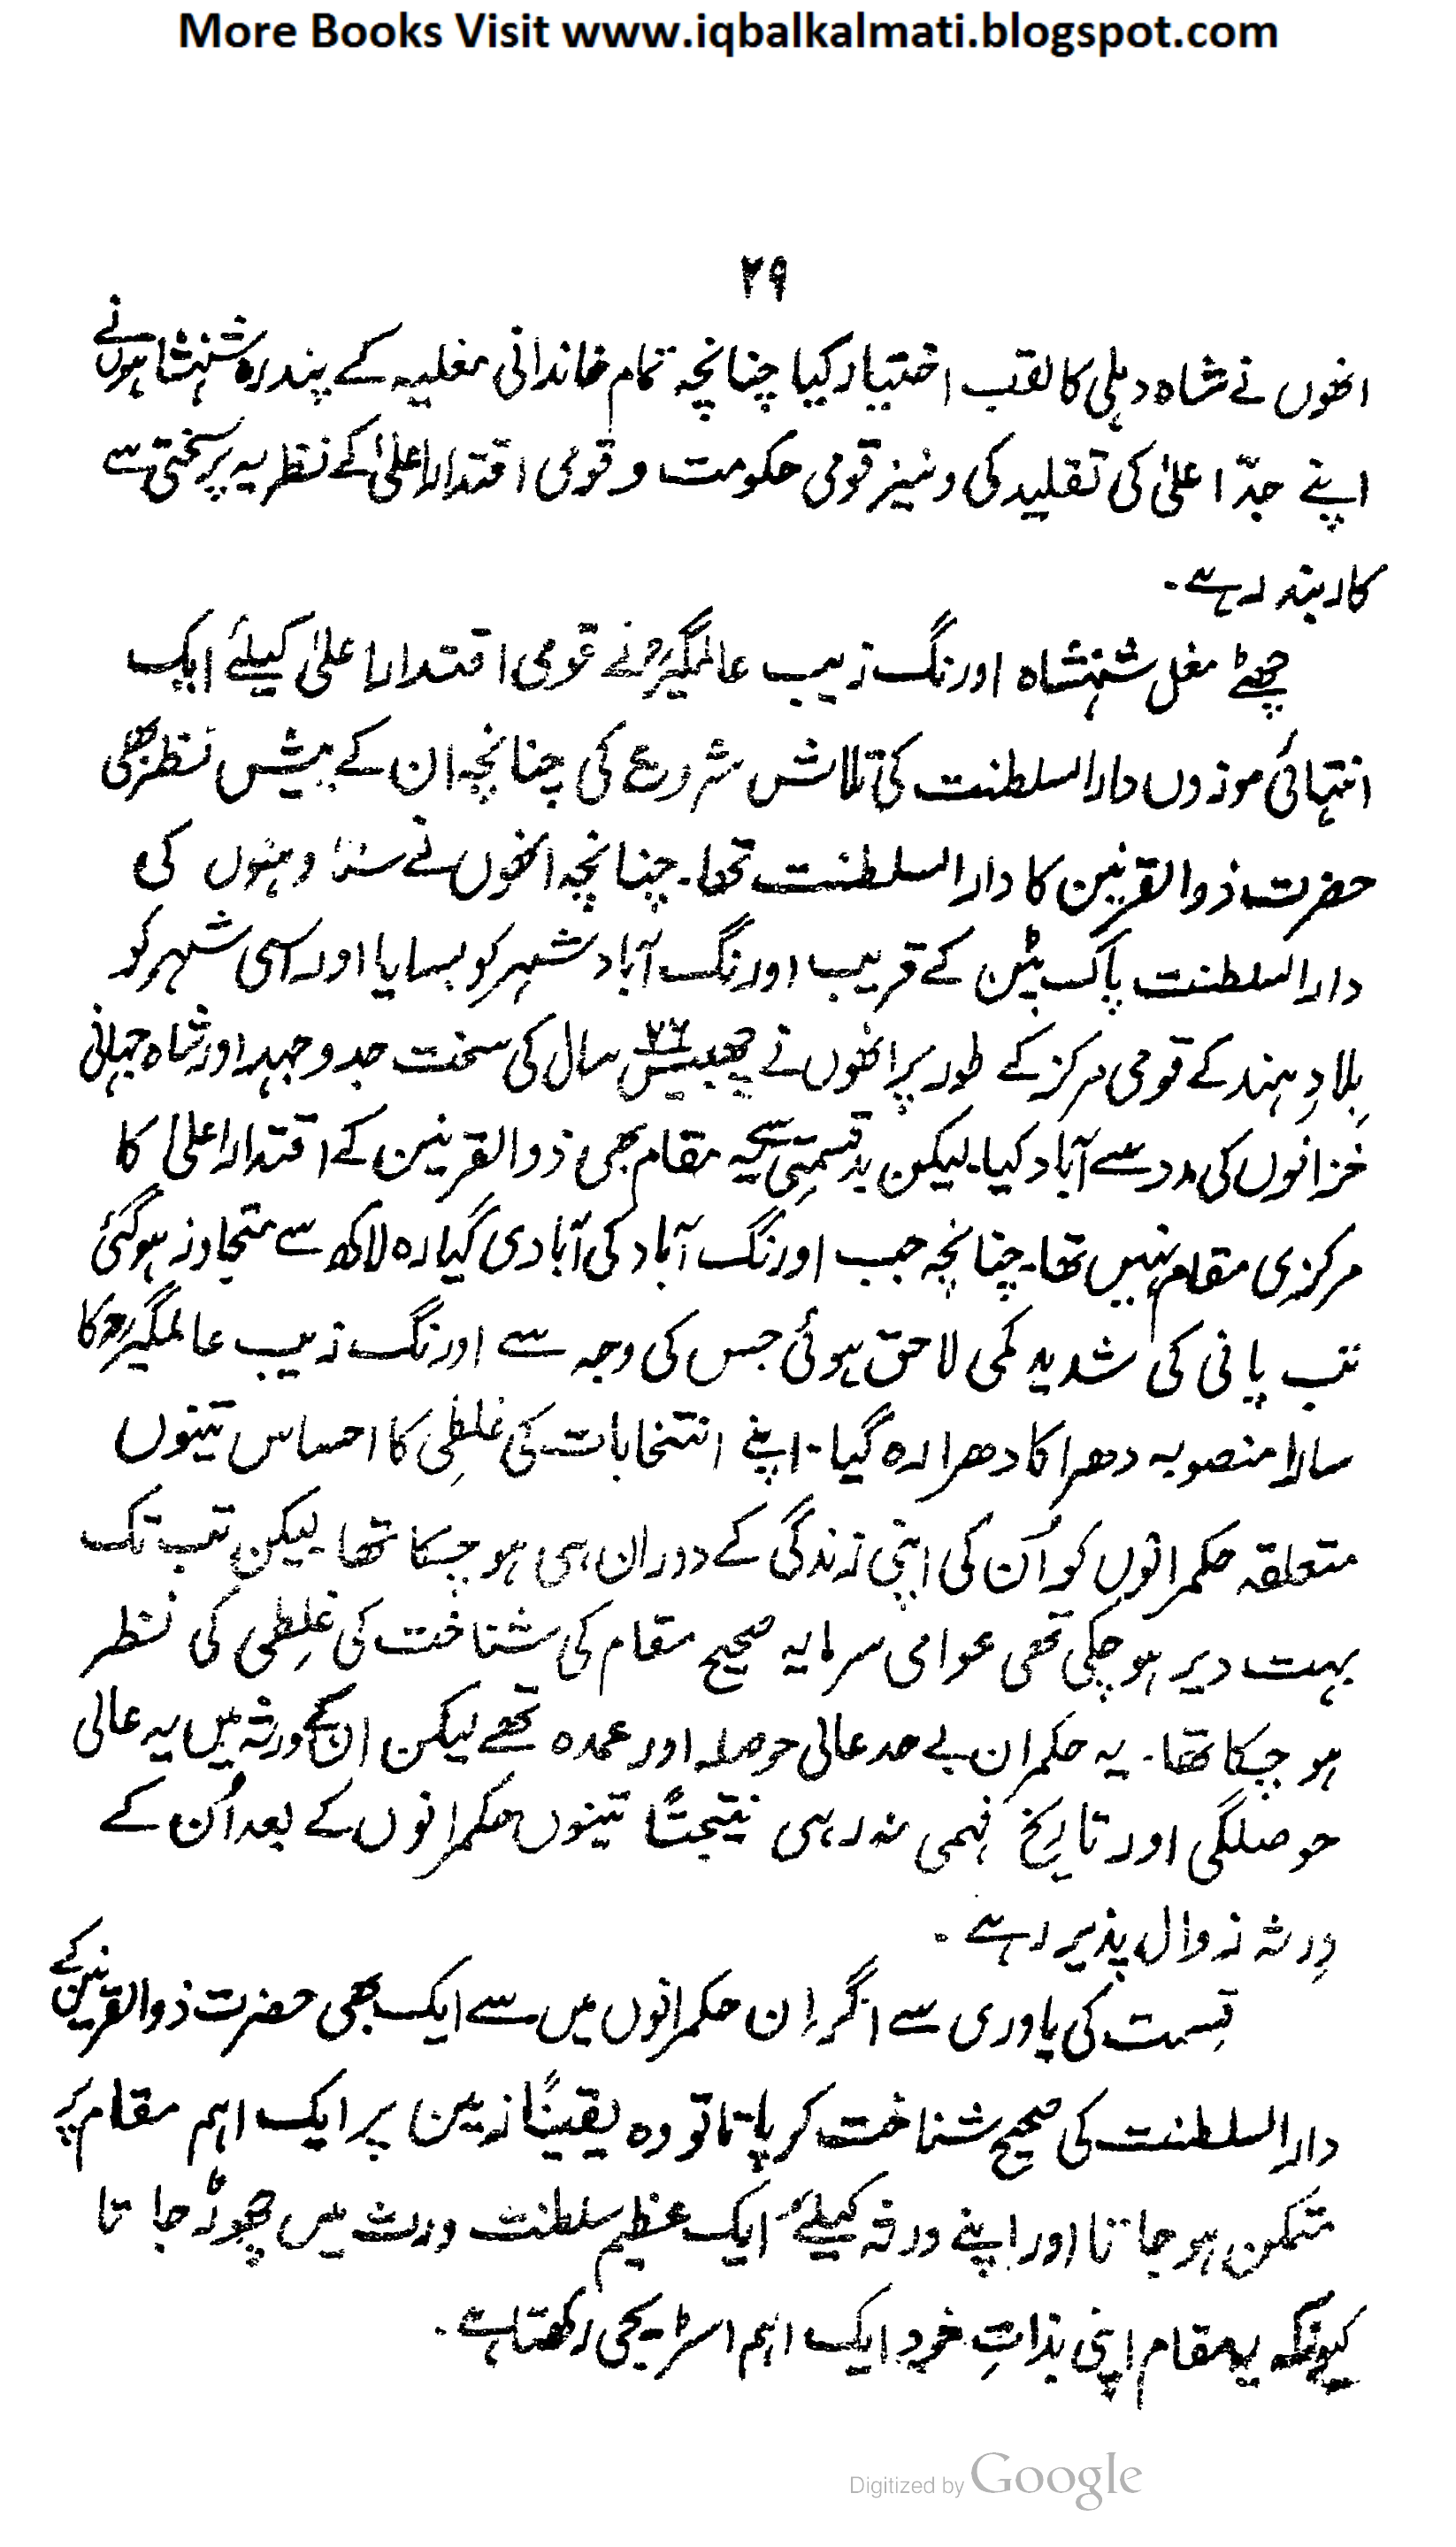 More Books Visit www.iqbalkalmati.blogspot.com
۲۹
انھوں نے شاہ دہلی کا لقب اختیار کیا چنانچہ تمام خاندانی مغلیہ کے پندرہ شہنشاہوں نے
اپنے جدّ اعلیٰ کی تقلید کی و نیز قومی حکومت و قومی اقتدار اعلیٰ کے نظریہ پر سختی سے
کاربند رہے۔
چھٹے مغل شہنشاہ اورنگ زیب عالمگیرؒ نے قومی اقتدار اعلیٰ کیلئے ایک
انتہائی موزوں دارالسلطنت کی تلاش شروع کی چنانچہ ان کے پیش نظر بھی
حضرت ذوالقرنین کا دارالسلطنت تھا۔ چنانچہ انھوں نے کی
دارالسلطنت پاک پٹن کے قریب اورنگ آباد شہر کو بسایا اور اسی شہر کو
بلادِ ہند کے قومی مرکز کے طور پر انھوں نے چھبیس ۲۶ سال کی سخت جدوجہد اور شاہ جہانی
خزانوں کی مدد سے آباد کیا۔ لیکن بدقسمتی سے یہ مقام بھی ذوالقرنین کے اقتدار اعلیٰ کا
مرکزی مقام نہیں تھا۔ چنانچہ جب اورنگ آباد کی آبادی گیارہ لاکھ سے متجاوز ہوگئی
تب پانی کی شدید کمی لاحق ہوئی جس کی وجہ سے اورنگ زیب عالمگیرؒ کا
سارا منصوبہ دھرا کا دھرا رہ گیا۔ اپنے انتخابات کی غلطی کا احساس تینوں
متعلقہ حکمرانوں کو اُن کی اپنی زندگی کے دوران ہی ہو چکا تھا۔ لیکن تب تک
بہت دیر ہو چکی تھی عوامی سرمایہ صحیح مقام کی شناخت کی غلطی کی نظر
ہو چکا تھا۔ یہ حکمران بے حد عالی حوصلہ اور عمدہ تھے لیکن ان کے ورثہ میں یہ عالی
حوصلگی اور تاریخ فہمی نہ رہی نتیجتاً تینوں حکمرانوں کے بعد اُن کے
ورثہ زوال پذیر رہے۔
قسمت کی یاوری سے اگر اِن حکمرانوں میں سے ایک بھی حضرت ذوالقرنین کے
دارالسلطنت کی صحیح شناخت کر پاتا تو وہ یقیناً زمین پر ایک اہم مقام پر
متمکن ہو جاتا اور اپنے ورثہ کیلئے ایک عظیم سلطنت ورثت میں چھوڑ جاتا
کیونکہ یہ مقام اپنی بذاتِ خود ایک اہم اسٹریٹجی رکھتا ہے۔
Digitized by Google